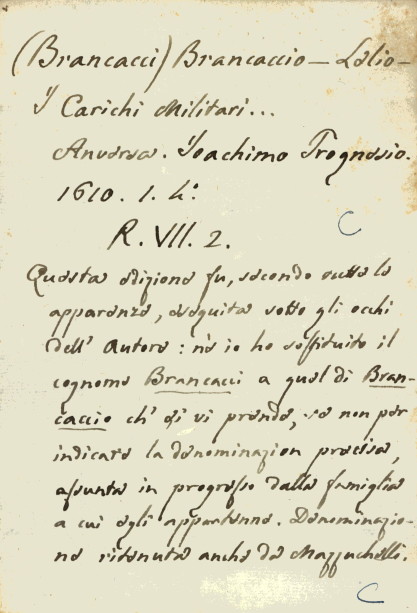 (Brancacci) Brancaccio – Lelio –
I Carichi Militari...
Anversa. Ioachimo Trognesio.
1610. 1. 4.º
R. VII. 2.
C
Questa edizione fu, secondo tutte le
apparenze, eseguita sotto gli occhi
dell' Autore: nè io ho sostituito il
cognome Brancacci a quel di Bran-
caccio ch' ei vi prende, se non per
indicare la denominazion precisa,
assunta in progresso dalla famiglia
a cui egli appartenne. Denominazio-
ne ritenuta anche da Mazzuchelli.
C